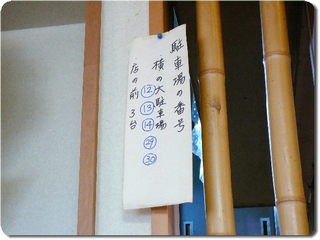 駐車場の番号
横の大駐車場
⑫
⑬
⑭
㉙
㉚
店の前3台